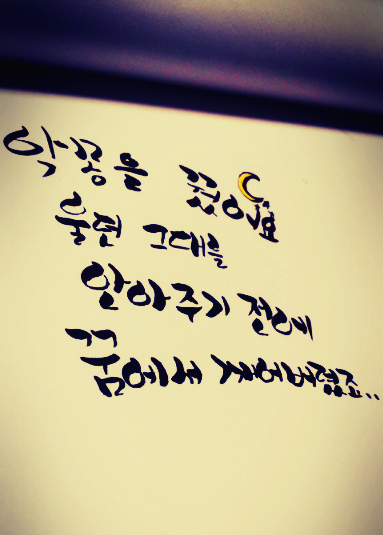 악몽을 꿨어요
울던 그대를
안아주기 전에
꿈에서 깨어버렸죠..